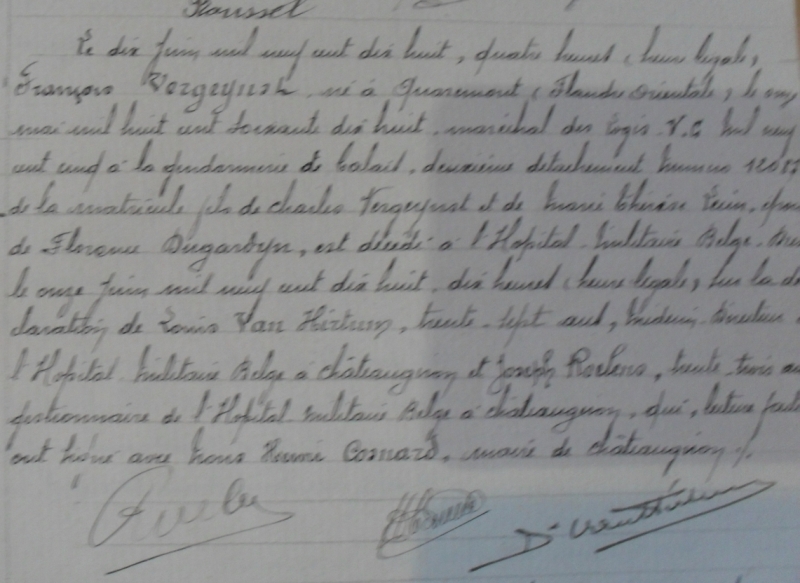 Roussel
Le dix juin mil neuf cent dix huit, quatre heures (heure légale,
François Vergeynst, né à Quaremont (Flandre Orientale, le onze
mai mil huit cent soixante dix huit, maréchal des logis V.C. mil neuf
cent cinq à la gendarmerie de Calais, deuxième détachement numéro
de la matricule fils de Charles Vergeynst et de Marie Thérèse
de Florence Dugardyn, est décédé à l'Hopital Militaire Belge
le onze juin mil neuf cent dix huit, dix heures (heure légale, sur la dé
claration de Louis Van Hirtum, trente sept ans, Médecin Directeur
l'Hopital Militaire Belge à châteaugiron et Joseph Roelens, trente trois ans
gestionnaire de l'Hopital Militaire Belge à châteaugiron, qui, lecture faite
ont signé avec nous Cosnard, maire de châteaugiron ./.
Dr Van Hirtum